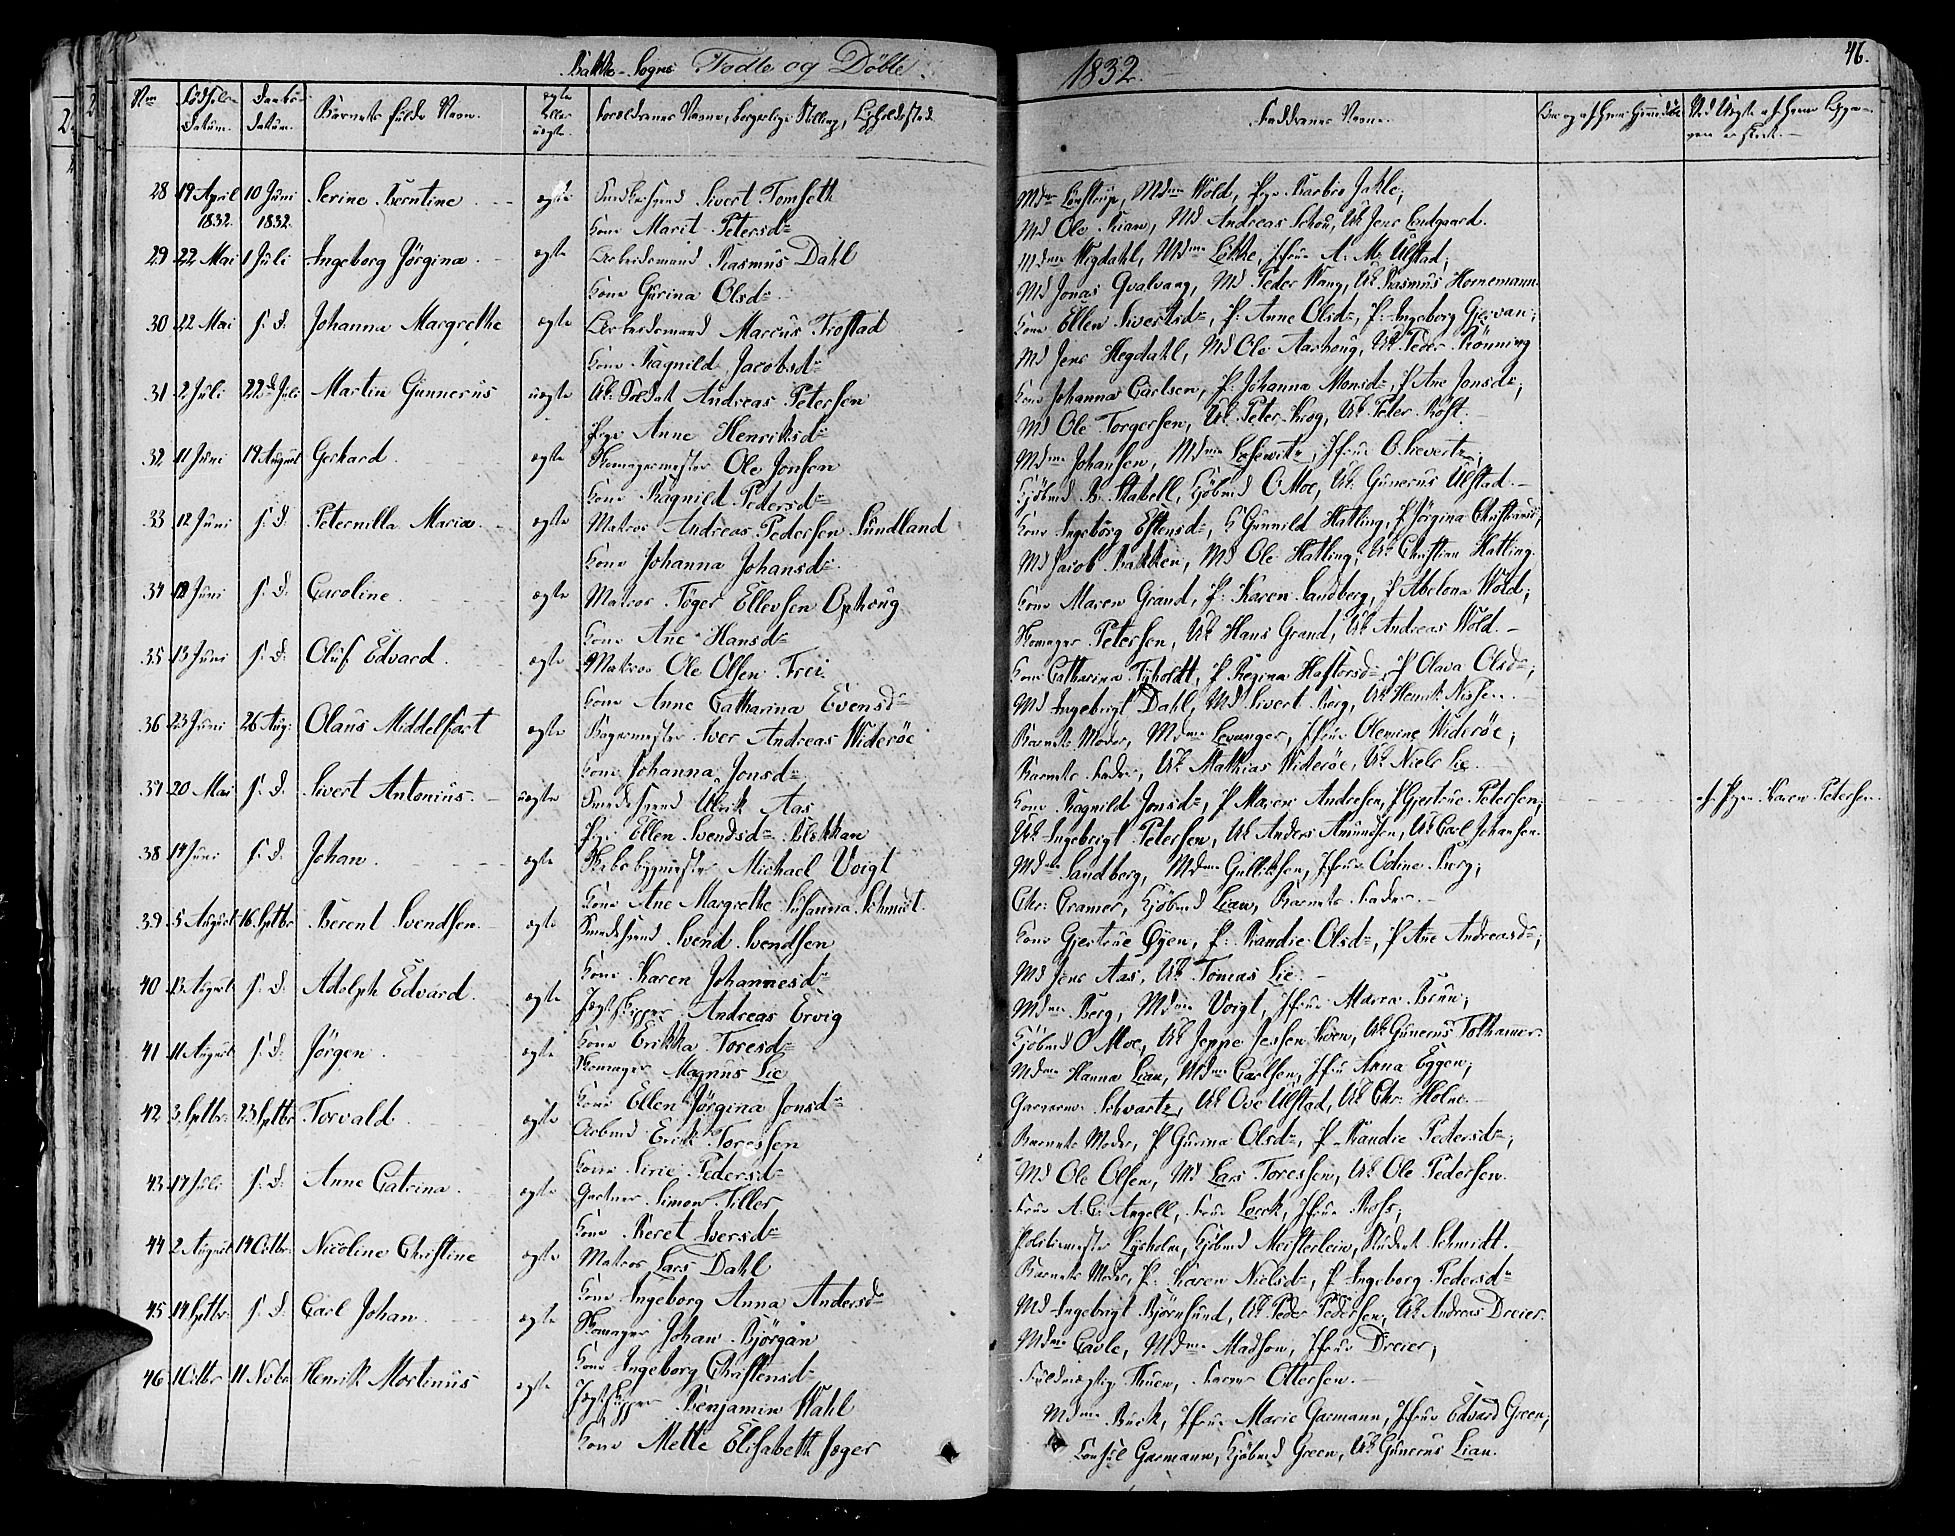 Bakke-Sogns Fødte og Døbte
1832.
46.
Nro
Fødsels-Datum.
Daabs-Datum.
Barnets fulde Navn.
ægte Eller uægte.
Forældrenes Navne, borgerlige Stilling, Opholdssted.
Faddernes Navne.
28 19 April 1832. 10 Juni 1832. Serine Berntine ægte Smedesvend Sivert Tomseth
Kone Marit Petersd:
Md Ole Kian, Md Andreas Schou, Uk Jens Lundgaard.
29 22 Mai 1 Juli Ingeborg Jörgina ægte Arbeidsmand Rasmus Dahl
Kone Gurina Olsd:
Mdme Wegdahl, Mdme Løkke, Jfrue A. M. Ulstad;
Md Jonas Qvalvaag, Md Peder Wang, Uk Rasmus Hornemann.
30 22 Mai s. d. Johanna Margrethe ægte Arbeidsmand Marcus Frostad
Kone Ragnild Jacobsd:
Kone Ellen Sivertsd:, P: Anne Olsd:, P: Ingeborg Gjervan;
Md Jens Hegdahl, Md Ole Aarhoug, Uk Peder Rönning
31 2 Juli 22de Juli Martin Gunnerus uægte Uk: Soldat Andreas Petersen
Pige Anne Henriksd:
Kone Johanna Carlsen, P: Johanna Monsd:, P Ane Jonsd:;
Md Ole Torgersen, Uk Peter Krog, Uk Peter Rost.
32 11 Juni 19 August Gerhard ægte Skomagermester Ole Jonsen
Kone Ragnild Pedersd:
Mdme Johansen, Mdme Losewitz, Jfrue O. Sievertz;
Kjöbmd B. Stabell, Kjöbmd O Moe, Uk: Gunerus Ulstad.
33 12 Juni s. d. Peternilla Maria ægte Matros Andreas Pedersen Sundland
Kone Johanna Johansd:
Kone Ingeborg Estensd:, K Gunnild Hatling, P Jörgina Christiansd;
Md Jacob Bakken, Md Ole Hatling, Uk Christian Hatling.
34 12 Juni s. d. Caroline ægte Matros Töger Ellevsen Ophoug
Kone Ane Hansd:
Kone Maren Grand, P: Karen Sandberg, P Abelona Wold;
Skomager Petersen, Uk Hans Grand, Uk Andreas Wold.
35 13 Juni s. d. Oluf Edvard ægte Matros Ole Olsen Frei
Kone Anne Catharina Evensd:
Kone Catharina Tyholdt, P Regina Haftorsd:, P Olava Olsd:;
Md Ingebrigt Dahl, Md Sivert Berg, Uk Henrik Nissen.
36 23 Juni 26 Aug: Olaus Middelfart ægte Bagermester Iver Andreas Widerøe
Kone Johanna Jonsd:
Barnets Moder, Mdme Levanger, Jfrue Olemine Widerøe;
Barnets Fader, Uk Mathias Widerøe, Uk Niels Lie.
37 20 Mai s. d. Sivert Antonius uægte Smedesvend Ulrik Aas
Pige Ellen Svendsd: Blekkan
Kone Ragnild Jonsd:, P Maren Andresen, P Gjertrue Petersen;
Uk Ingebrigt Petersen, Uk Anders Amundsen, Uk Carl Johansen.
af Pigen Karen Petersen.
38 14 Juni s. d. Johan ægte Skibsbygmester Michael Voigt
Kone Ane Margrethe Susanna Schmidt.
Mdme Sandberg, Mdme Gullichsen, Jfrue Odine Berg;
Chr: Cramer, Kjöbmd Lian, Barnets Fader.
39 5 August 16 Septbr Berent Svendsen ægte Smedesvend Svend Svendsen
Kone Karen Johannesd:
Kone Gjertrue Öyen, P: Randie Olsd:, P Ane Andreasd:;
Md Jens Aas, Uk Tomas Lie.
40 13 August s. d. Adolph Edvard ægte Jagtskipper Andreas Ervig
Kone Erikka Toresd:
Mdme Berg, Mdme Voigt, Jfrue Maren Brun;
Kjöbmd O Moe, Uk Jeppe Jessen Hven, Uk Gunerus Tolhamer.
41 11 August s. d. Jörgen ægte Skomager Magnus Lie
Kone Ellen Jörgina Jonsd:
Mdme Hanna Lian, Mdme Carlsen, Jfrue Anna Eggen;
Garverm: Schvartz, Uk Ove Ulstad, Uk Chr: Holm.
42 3 Septbr: 23 Septbr Torvald ægte Arbmd Erik Toressen
Kone Sirie Pedersd:
Barnets Moder, P Gurina Olsd:, P Randie Pedersd:;
Md Ole Olsen, Md Lars Toressen, Uk Ole Pedersen.
43 17 Juli s. d. Anne Catrina ægte Gartner Simon Tiller
Kone Beret Iversd:
Frue A. C. Angell, Frue Lorck, Jfrue Ross;
Politimester Lysholm, Kjöbmd Meisterlein, Student Schmidt.
44 2 August 14 Octbr: Nicoline Christine ægte Matros Lars Dahl
Kone Ingeborg Anna Andersd:
Barnets Moder, P: Karen Nielsd:, P Ingeborg Pedersd:
Md Ingebrigt Björnsund, Uk Peder Pedersen, Uk Andreas Dreier.
45 14 Septbr: s. d. Carl Johan ægte Skomager Johan Björgan
Kone Ingeborg Christensd:
Mdme Carle, Mdme Madson, Jfrue Dreier;
Fuldmægtig Thuen, Farver Ottersen.
46 1 Octbr 11 Novbr Henrik Mortinus ægte Jagtskipper Benjamin Wahl
Kone Mette Elisabeth Jæger
Mdme Buck, Jfrue Marie Garmann, Jfrue Edvard Green;
Consul Garmann, Kjöbmd Green, Uk Gunerus Lian.